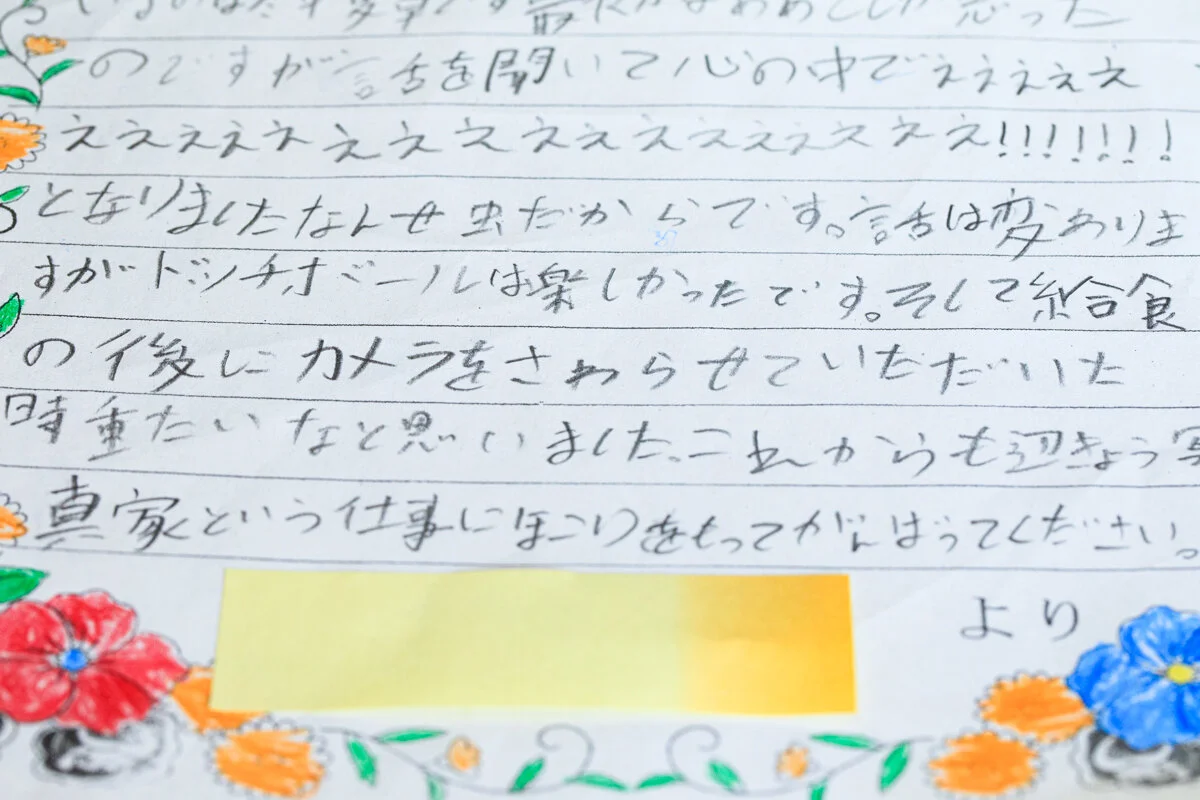 思った
のですが話を聞いて心の中でえええええ
えええええええええええええええええ!!!!!!!
となりましたなんせ虫だからです。話は変ありま
すがドッチボールは楽しかったです。そして給食
の後にカメラをさわらせていただいた
時重たいなと思いました。これからも辺きょう写
真家という仕事にほこりをもってがんばってください。
より